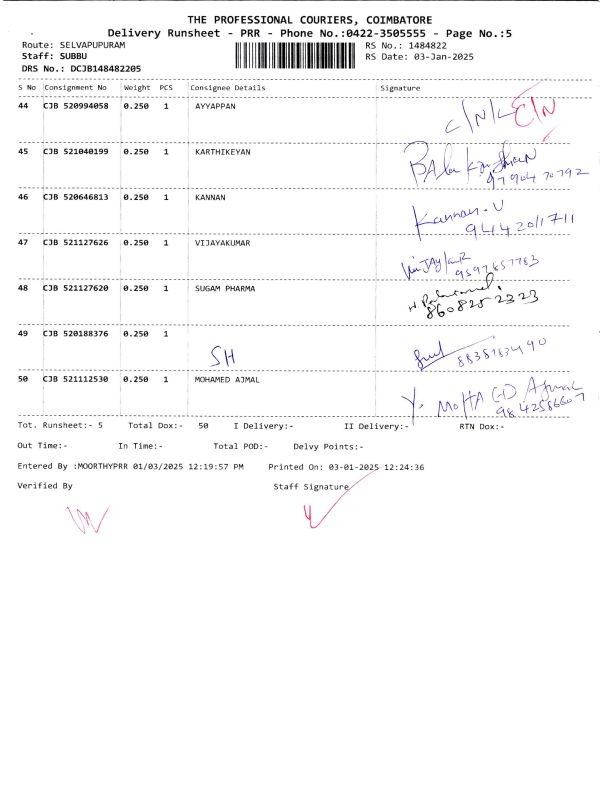 THE PROFESSIONAL COURIERS, COIMBATORE
Delivery Runsheet - PRR - Phone No.:0422-3505555 - Page No.:5
Route: SELVAPUPURAM RS No.: 1484822
Staff: SUBBU RS Date: 03-Jan-2025
DRS No.: DCJB148482205
S No Consignment No Weight PCS Consignee Details Signature
44 CJB 520994058 0.250 1 AYYAPPAN
C/N/L C/N
45 CJB 521040199 0.250 1 KARTHIKEYAN
9790470792
46 CJB 520646813 0.250 1 KANNAN
Kannan.U
9442011711
47 CJB 521127626 0.250 1 VIJAYAKUMAR
9597657783
48 CJB 521127620 0.250 1 SUGAM PHARMA
860825 2323
49 CJB 520188376 0.250 1
SH
50 CJB 521112530 0.250 1 MOHAMED AJMAL
Y. MOHA Ajmal
9842586607
Tot. Runsheet:- 5 Total Dox:- 50 I Delivery:- II Delivery:- RTN Dox:-
Out Time:- In Time:- Total POD:- Delvy Points:-
Entered By :MOORTHYPRR 01/03/2025 12:19:57 PM Printed On: 03-01-2025 12:24:36
Verified By Staff Signature